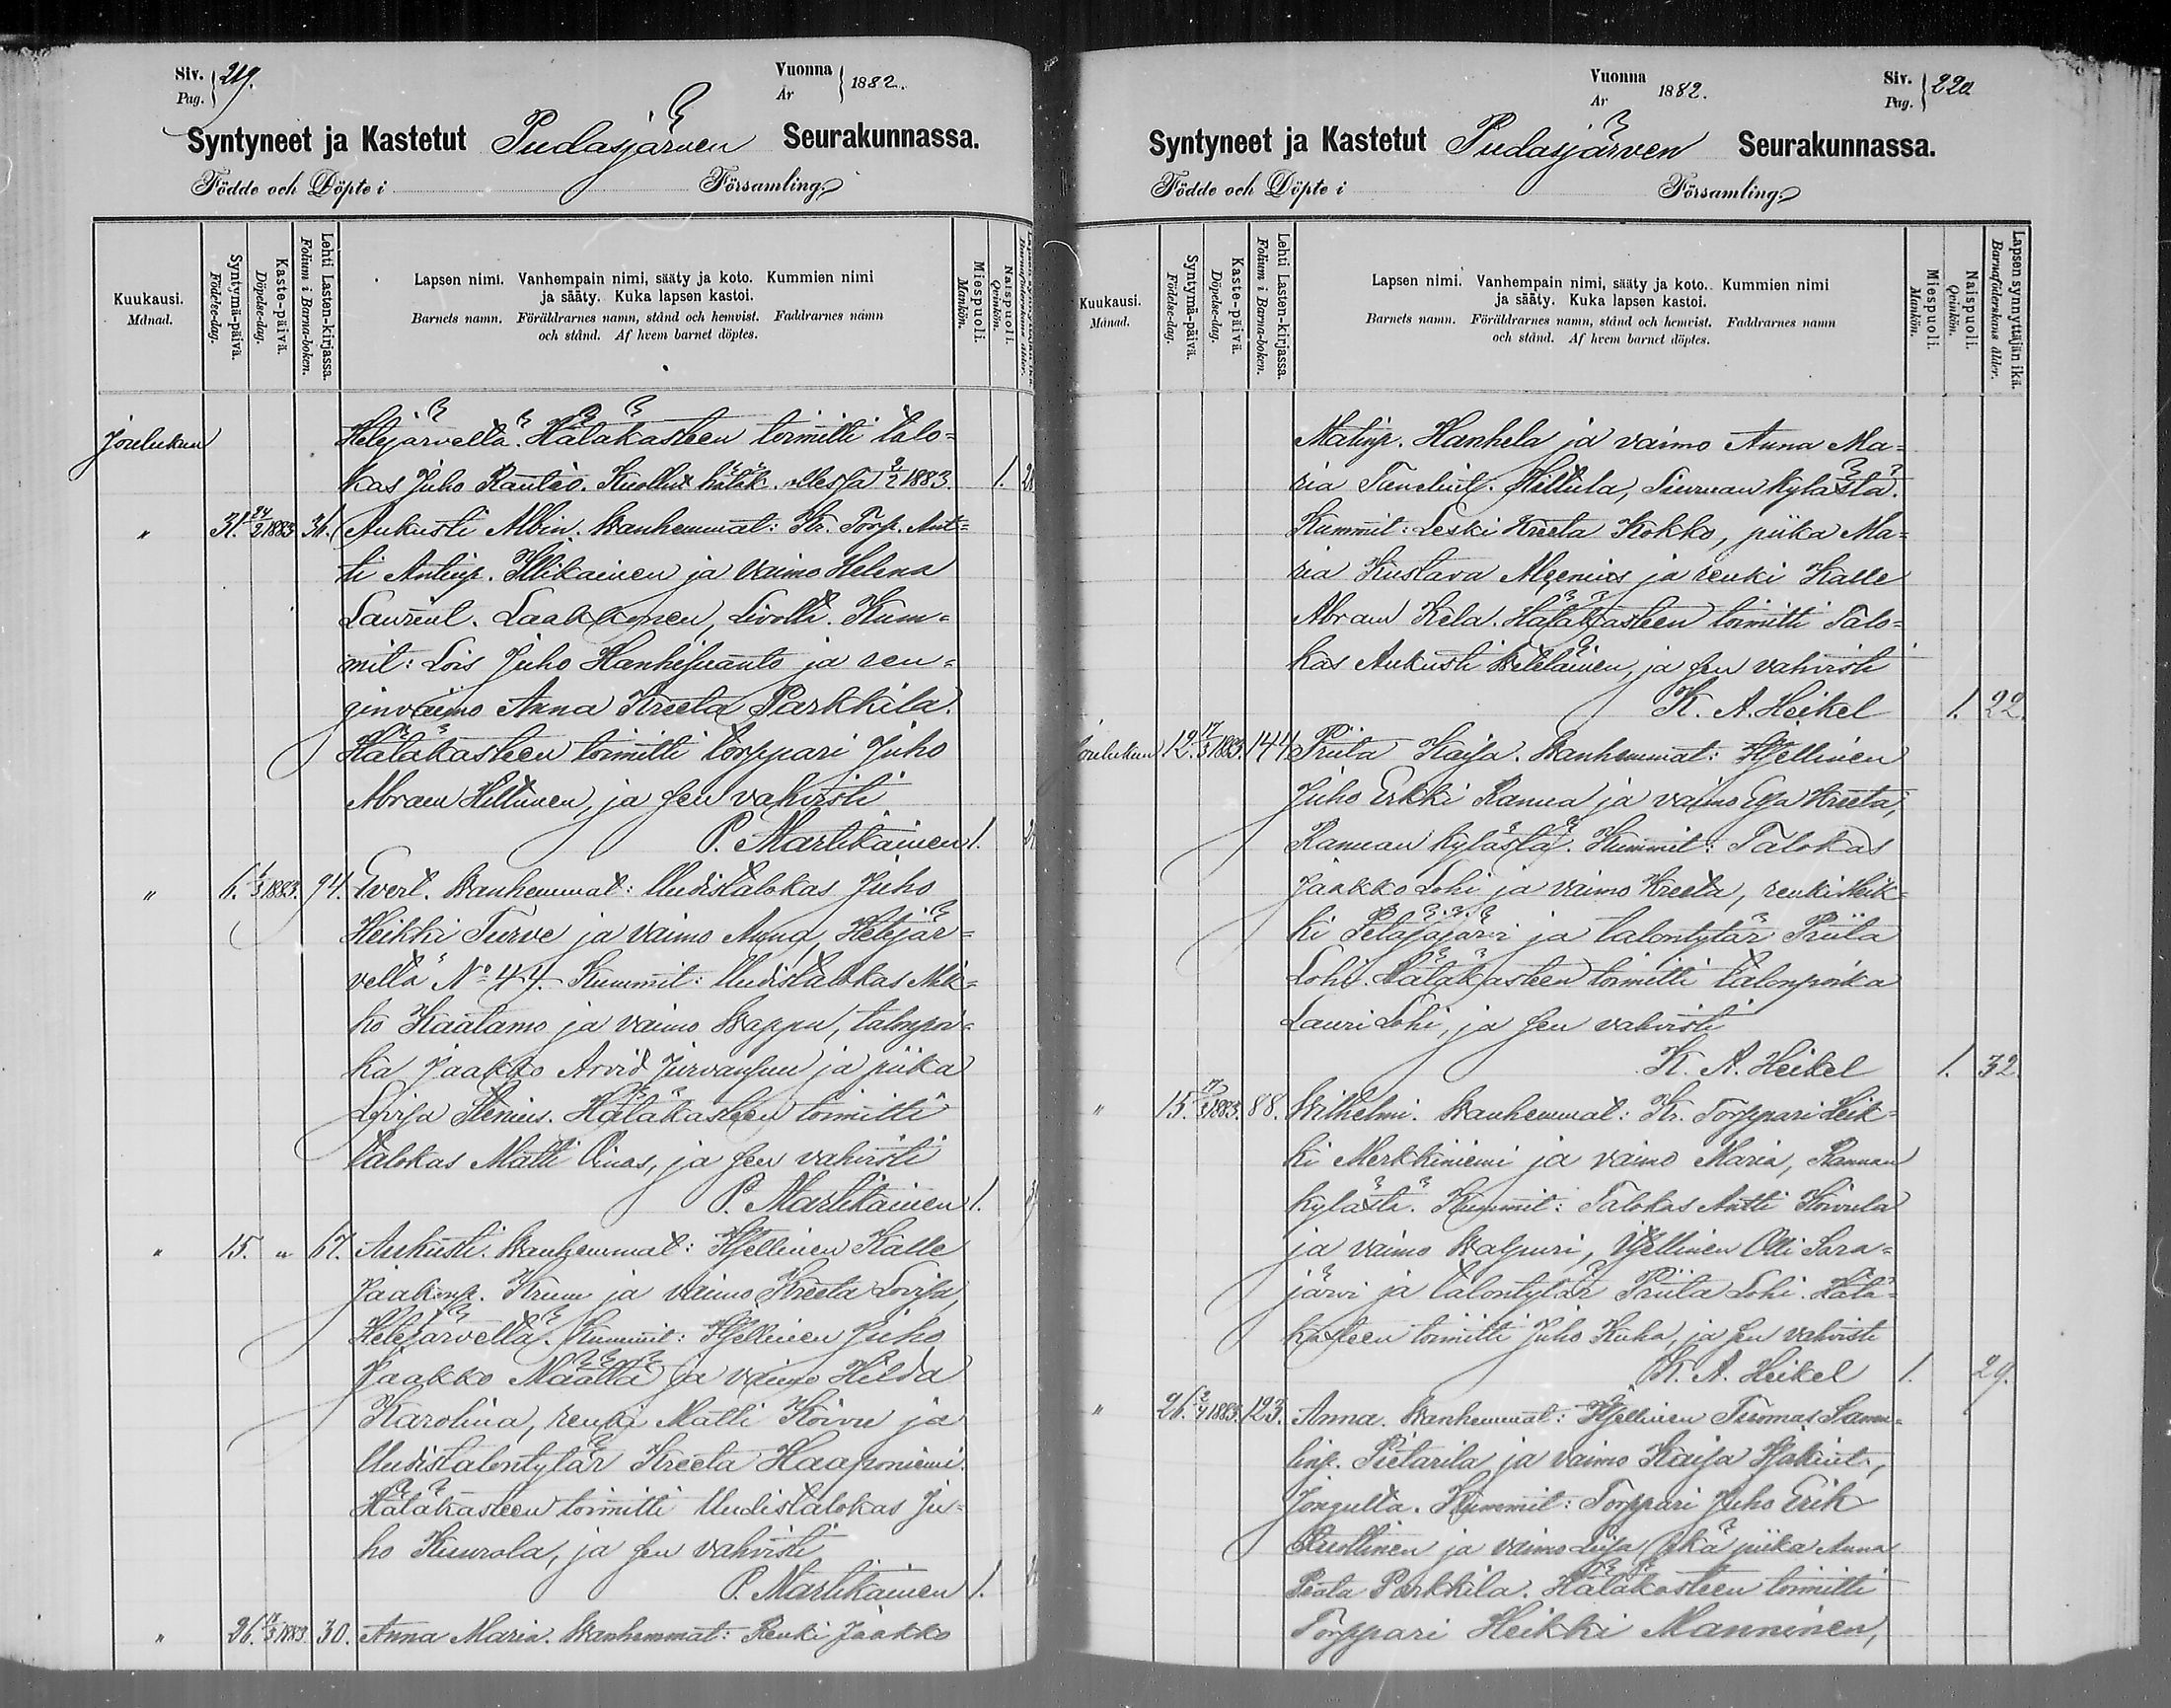 Siv. 219.
Pag.
Vuonna 1882.
År
Syntyneet ja Kastetut Pudasjärven Seurakunnassa.
Födde och Döpte i Församling.
Kuukausi.
Månad.
Syntymä-päivä.
Födelse-dag.
Kaste-päivä.
Döpelse-dag.
Lehti Lasten-kirjassa.
Folium i Barna-boken.
Lapsen nimi. Vanhempain nimi, sääty ja koto. Kummien nimi
ja sääty. Kuka lapsen kastoi.
Barnets namn. Föräldrarnes namn, stånd och hemvist. Faddrarnes namn
och stånd. Af hvem barnet döptes.
Miespuoli.
Mankön.
Naispuoli.
Qvinkön.
Joulukun Hetejärveltä. Hätäkasteen toimitti talo=
kas Juho Rautio. Kuollut hätäk. 9/2 1883. 1.
" 31. 24/2 1883 36. Aukusti Albin. Wanhemmat: Kr. Torp. Ant=
ti Antinp. Illikainen ja vaimo Helena
Laurint. Laakkonen, Livolta. Kum=
mit: Lois Juho Hanhisuanto ja ren=
ginvaimo Anna Kreeta Parkkila.
Hätäkasteen toimitti torppari Juho
Abram Hiltunen, ja sen vahvisti
P. Martikainen 1.
" 6. 1/3 1883. 94. Evert. Wanhemmat: Uudistalokas Juho
Heikki Turve ja vaimo Anna, Hetejär=
veltä No 44. Kummit: Uudistalokas Mik=
ko Kaatamo ja vaimo Wappu, talonpoi=
ka Jaakko Arvid Jurvansuu ja piika
Lovisa Stenius. Hätäkasteen toimitti
talokas Matti Oinas, ja sen vahvisti
P. Martikainen 1.
" 15. " 67. Aukusti. Wanhemmat: Itsellinen Kalle
Jaakonp. Krum ja vaimo Kreeta Lovisa,
Hetejärveltä. Kummit: Itsellinen Juho
Jaakko Määttä ja vaimo Hilda
Karolina, renki Matti Koivu ja
Uudistalontytär Kreeta Haaponiemi.
Hätäkasteen toimitti Uudistalokas Ju=
ho Kuurola, ja sen vahvisti
P. Martikainen 1.
" 26. 17/3 1883. 30. Anna Maria. Wanhemmat: Renki Jaakko
Vuonna 1882.
År
Siv. 220
Pag.
Syntyneet ja Kastetut Pudasjärven Seurakunnassa.
Födde och Döpte i Församling.
Kuukausi.
Månad.
Syntymä-päivä.
Födelse-dag.
Kaste-päivä.
Döpelse-dag.
Lehti Lasten-kirjassa.
Folium i Barna-boken.
Lapsen nimi. Vanhempain nimi, sääty ja koto. Kummien nimi
ja sääty. Kuka lapsen kastoi.
Barnets namn. Föräldrarnes namn, stånd och hemvist. Faddrarnes namn
och stånd. Af hvem barnet döptes.
Miespuoli.
Mankön.
Naispuoli.
Qvinkön.
Lapsen synnyttäjän ikä.
Barnaföderskans ålder.
Matinp. Hanhela ja vaimo Anna Ma=
ria Hiltula, Siuruan kylästä.
Kummit: Leski Kreeta Kokko, piika Ma=
ria Kustava Algenius ja renki Kalle
Abram Kela. Hätäkasteen toimitti Talo=
kas Aukusti Weteläinen, ja sen vahvisti
K. A. Heikel 1. 22.
Joulukun 12. 17/3 1883. 144. Priita Kaisa. Wanhemmat: Itsellinen
Juho Erkki Ranua ja vaimo Kreeta,
Ranuan kylästä. Kummit: Talokas
Jaakko Lohi ja vaimo Kreeta, renki Heik=
ki Petäjäjärvi ja talontytär Priita
Lohi. Hätäkasteen toimitti talonpoika
Lauri Lohi, ja sen vahvisti
K. A. Heikel 1. 32.
" 15. 17/3 1883. 88. Wilhelmi. Wanhemmat: Kr. Torppari Heik=
ki Merkkiniemi ja vaimo Maria, Ranuan
kylästä. Kummit: Talokas Antti Koivula
ja vaimo Walpuri, Itsellinen Olli Sara=
järvi ja talontytär Priita Lohi. Hätä=
kasteen toimitti Juho Kuha, ja sen vahvisti
K. A. Heikel 1. 29.
" 26. 1883. 123. Anna. Wanhemmat: Itsellinen Tuomas Samu=
linp. Pietarila ja vaimo Kaisa
Jongulta. Kummit: Torppari Juho Erik
ja vaimo Liisa sekä piika Anna
Parkkila. Hätäkasteen toimitti
Torppari Heikki Manninen,